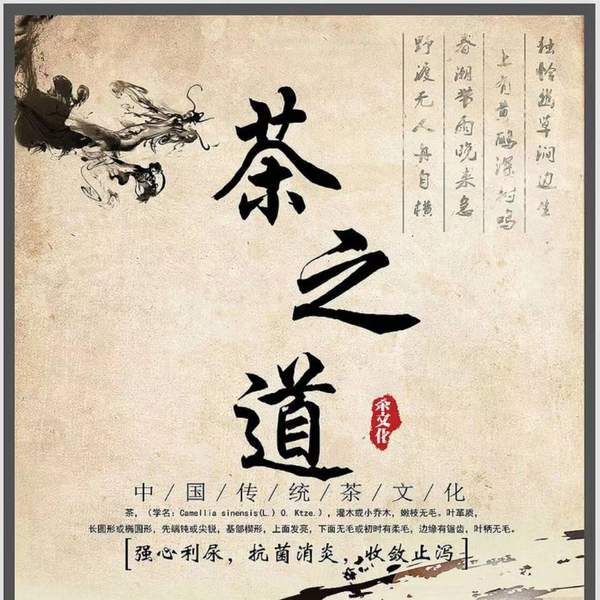 独怜幽草涧边生
上有黄鹂深树鸣
春潮带雨晚来急
野渡无人舟自横
茶之道
茶文化
中/国/传/统/茶/文/化
茶,(学名:Camellia sinensis(L.) O. Ktze.),灌木或小乔木,嫩枝无毛。叶革质,
长圆形或椭圆形,先端钝或尖锐,基部楔形,上面发亮,下面无毛或初时有柔毛,边缘有锯齿,叶柄无毛。
[强心利尿,抗菌消炎,收敛止泻]